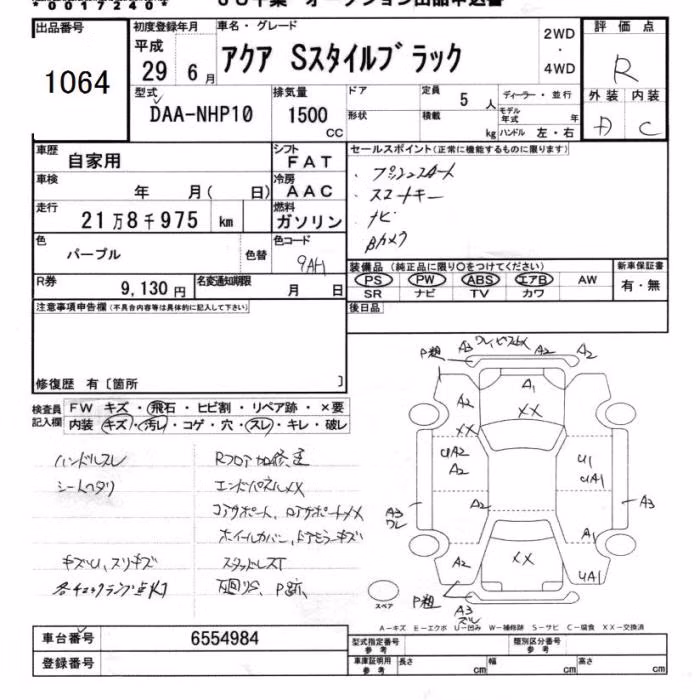 出品番号
1064
初度登録年月
平成
29 6月
車名・グレード
アクア Sスタイルブラック
2WD
・
4WD
評価点
R
外装 内装
A C
型式
DAA-NHP10
排気量
1500
CC
ドア
形状
定員
5人
積載
kg
ディーラー・並行
モデル年式 年
ハンドル 左・右
車歴
自家用
シフト
FAT
車検
年 月( 日)
冷房
AAC
走行
21万8千975 km
燃料
ガソリン
色
パープル
色替
色コード
9AH
R券
9,130円
名変通知期限
月 日
セールスポイント(正常に機能するものに限ります)
・プッシュスタート
・スマートキー
・ナビ
・Bカメラ
装備品(純正品に限り○をつけてください)
PS PW ABS エアB AW
SR ナビ TV カワ
新車保証書
有・無
注意事項申告欄(不具合内容等は具体的に記入して下さい)
後日品
修復歴 有〔箇所 〕
検査員記入欄
FW キズ・飛石・ヒビ割・リペア跡・×要
内装 キズ・汚レ・コゲ・穴・スレ・キレ・破レ
ハンドルスレ
シートヘタリ
キズU、スリキズ
各チェックランプ点灯
Rフロア加修正
エンドパネルXX
コアサポート、ロアサポートXX
ホイールカバー、ドアミラーキズ
スタッドレスT
下廻りS、P跡
P粗 A3 ワレ A2 A2
A1
A2 XX
XX
UA2
A2
A2
U1
UA1
A3
ワレ
A3
A1
A2
XX
UA1
P粗
A3
スペア
A-キズ E-エクボ U-凹み W-補修跡 S-サビ C-腐食 XX-交換済
車台番号
6554984
登録番号
型式指定番号
参考
類別区分番号
参考
車庫証明用
参考
長さ cm
幅 cm
高さ cm